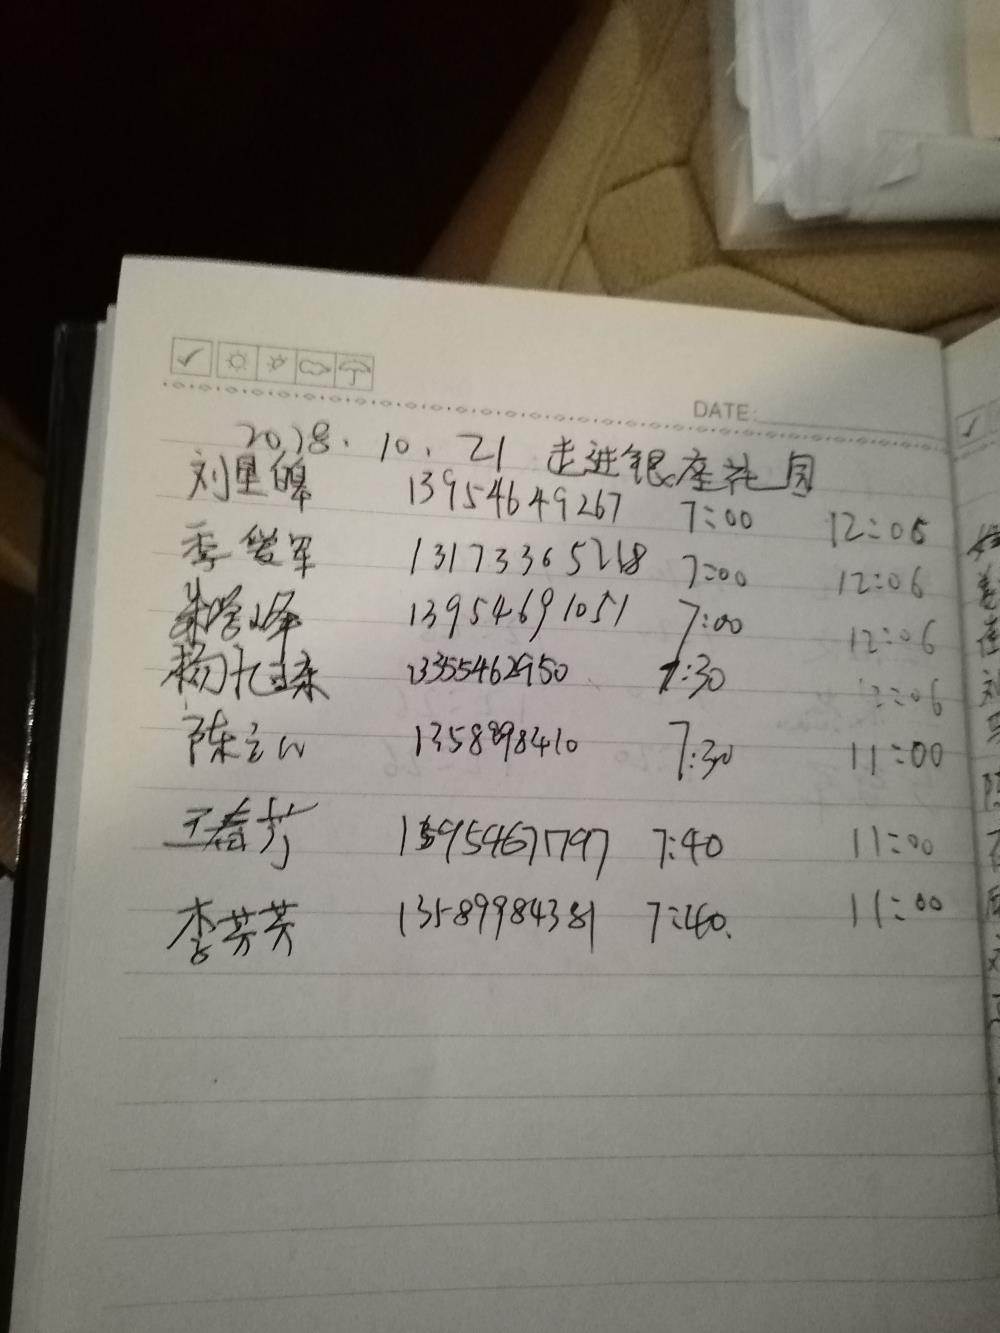 DATE:
2018.10.21 走进银座花园
刘星皞 13954649267 7:00 12:06
季俊军 13173365218 7:00 12:06
朱学峰 13954691051 7:00 12:06
杨 13355462950 7:30 12:06
陈立 13589898410 7:30 11:00
王春芳 15954671797 7:40 11:00
李芳芳 13589984381 7:40. 11:00